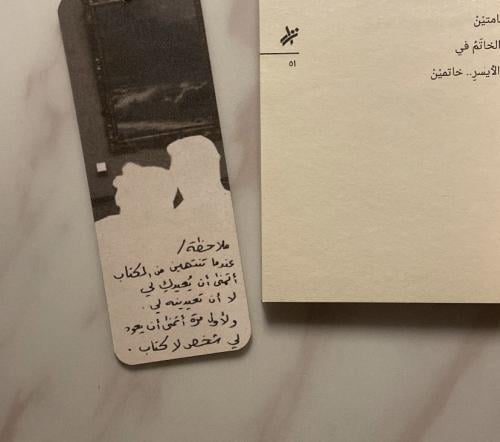 ملاحظة/
عندما تنتهين من الكتاب
أتمنى أن يُعيدكِ لي
لا أن تعيدينه لي.
ولأول مرة أتمنى أن يعود
لي شخص لا كتاب.
الخاتَمُ في
الأيسرِ.. خاتميْنْ
٥١